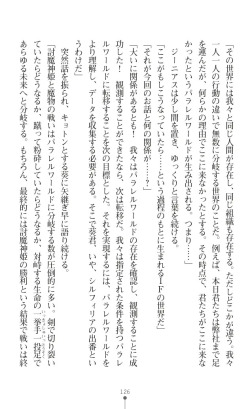 「その世界には我々と同じ人間が存在し、同じ組織も存在する。ただしどこかが違う。我々
一人一人の行動の違いで無数に分岐する世界のことだ。例えば、本日君たちは弊社まで足
を運んだが、何らかの理由でここに来なかったとする。その時点で、君たちがここに来な
かったというパラレルワールドが生み出される。つまり……」
ジーニアスは少し間を置き、ゆっくりと言葉を続ける。
「ここがもしこうなっていたら……という過程のもとに生まれるＩＦの世界だ」
「それが今回のお話と何の関係が……？」
「大いに関係があるとも！　我々はパラレルワールドの存在を確認し、観測することに
成功した！　観測することができたなら、次は転移だ。我々は指定された条件を持つパラレ
ルワールドに転移することを次の目標とした。それを実現するには、パラレルワールドを
より理解し、データを収集する必要がある。そこで葵君、いや、シルフィリアの出番とい
うわけだ」
突然話を振られ、キョトンとする葵に矢継ぎ早に語り続ける。
「討魔神姫と魔物の戦いはパラレルワールドに分岐する数が圧倒的に多い。剣で切り裂い
ていたらどうなるか、蹴って粉砕していたらどうなるか、対峙する生命の一挙手一投足で
あらゆる未来へと分岐する。もちろん、最終的には討魔神姫の勝利という結果で戦いは終
126